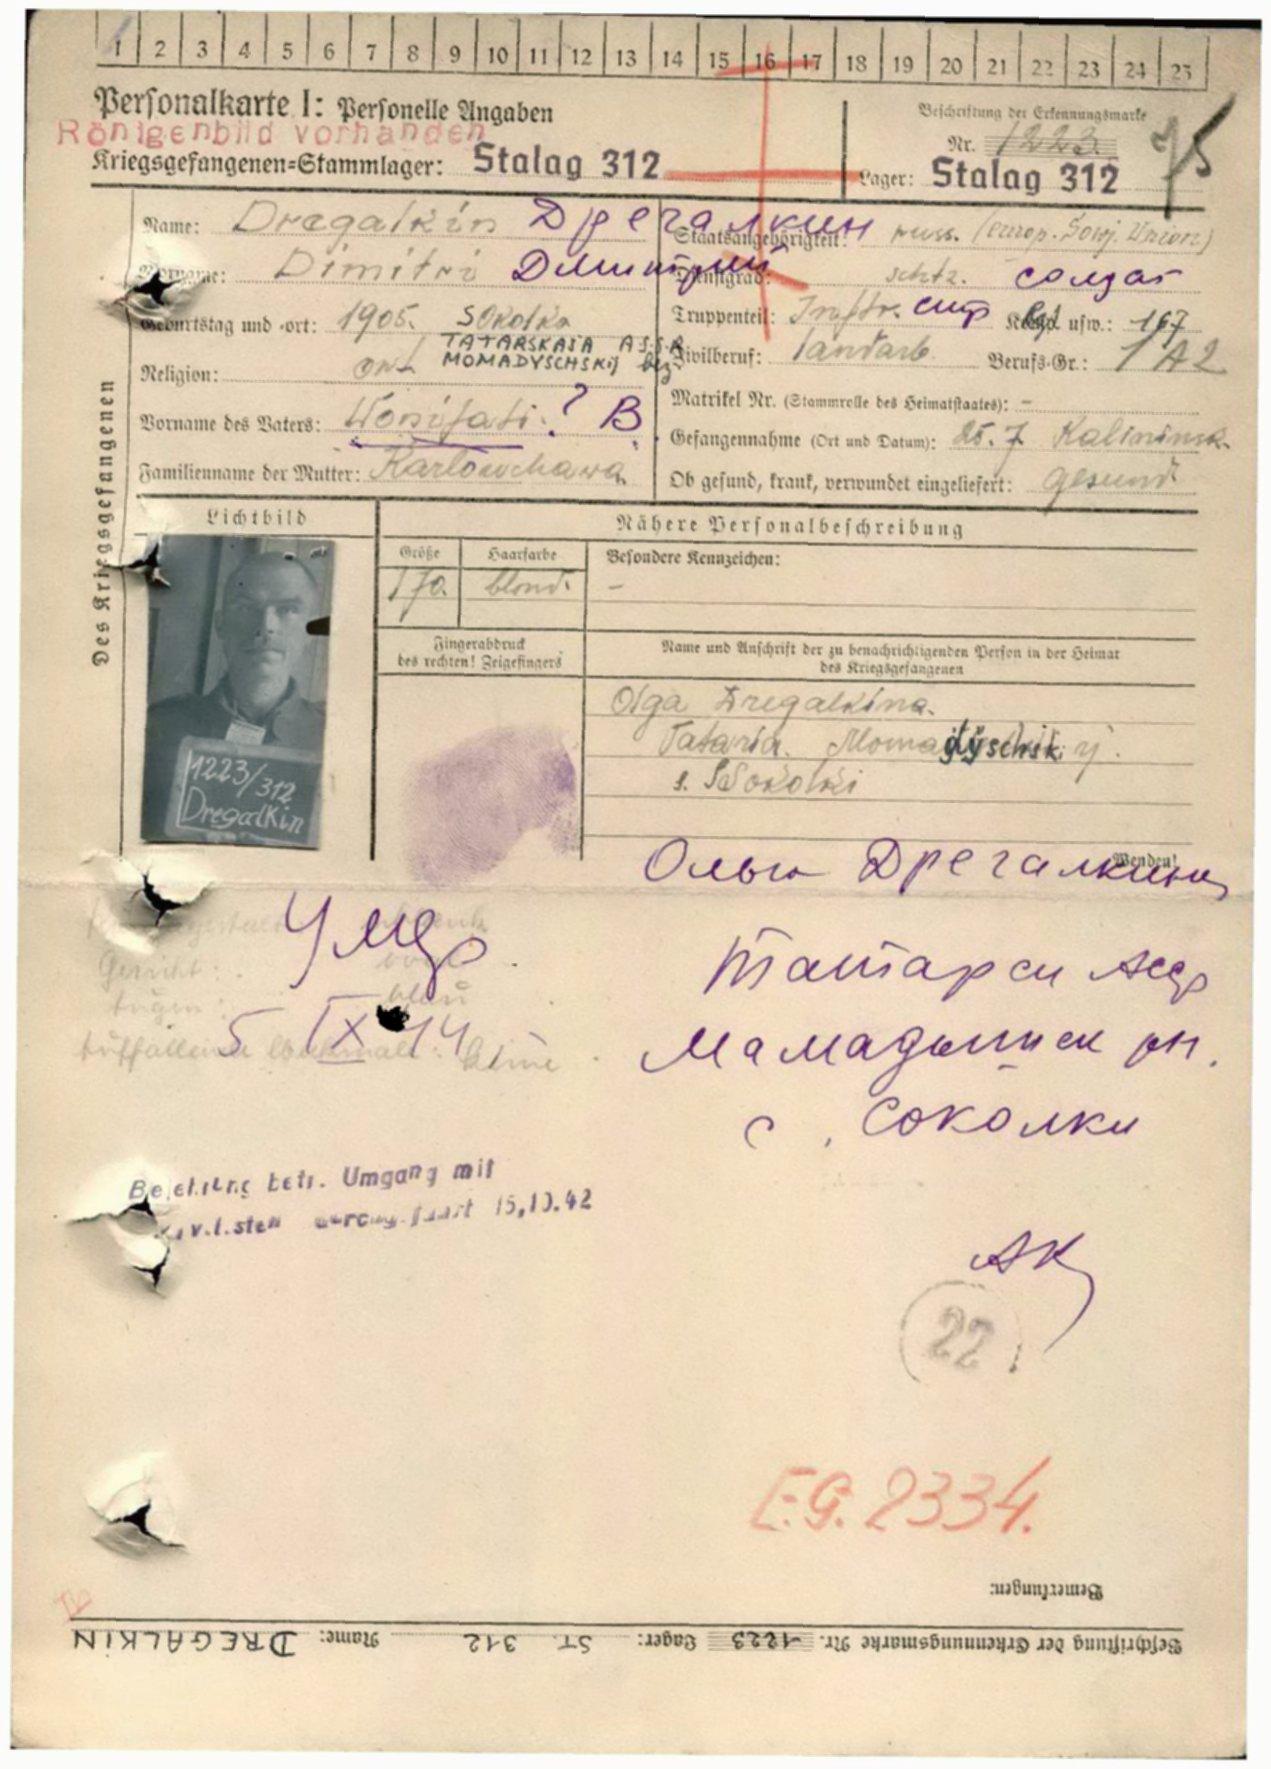 1 2 3 4 5 6 7 8 9 10 11 12 13 14 15 16 17 18 19 20 21 22 23 24 25
Personalkarte I: Personelle Angaben
Röntgenbild vorhanden
Kriegsgefangenen=Stammlager: Stalag 312
Beschriftung der Erkennungsmarke
Nr. 1223
Lager: Stalag 312
75
Des Kriegsgefangenen
Name: Dregalkin Дрегалкин
Vorname: Dimitri Димитрий
Geburtstag und -ort: 1905. Sokolka
TATARSKAJA ASSR
Religion: ort. MOMADYSCHSKIJ bez
Vorname des Vaters: ? В
Familienname der Mutter: Karlowchawa
Staatsangehörigkeit: russ. (europ. Sowj. Union)
Dienstgrad: schtz. солдат
Truppenteil: Inftr. стр Komp. usw.: 167
Zivilberuf: landarb. Berufs-Gr.: 1 A 2
Matrikel Nr. (Stammrolle des Heimatstaates): -
Gefangennahme (Ort und Datum): 25. 7 Kalininsk.
Ob gesund, krank, verwundet eingeliefert: gesund.
Lichtbild
Nähere Personalbeschreibung
Größe Haarfarbe Besondere Kennzeichen:
170. blond. -
1223/312
Dregalkin
Fingerabdruck
des rechten! Zeigefingers
Name und Anschrift der zu benachrichtigenden Person in der Heimat
des Kriegsgefangenen
Olga Dregalkina.
Tataria. Momadyschsk. rj.
s. Sokolki
Wenden!
Ольга Дрегалкина
Татарск Асср
Мамадышск рн.
с. Соколки
АК
Умер.
5 IX 44
Gesicht:
Augen: blau
Auffallende Merkmale: keine
Belehrung betr. Umgang mit
Zivilisten durchgeführt 15,10.42
22
E.G. 2334.
Bemerkungen:
Beschriftung der Erkennungsmarke Nr. 1223 Lager: ST. 312 Name: DREGALKIN